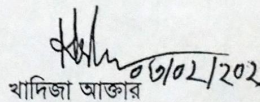 ০৬/০২/২০২
খাদিজা আক্তার